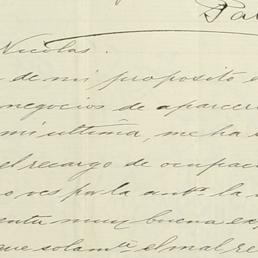 Par
Nicolas.
de mi proposito e
negocios de aparcer
mi ultima, me ha s
el recargo de ocupac
o ves por la antr. la
enta muy buena ex
que solamte. el mal re